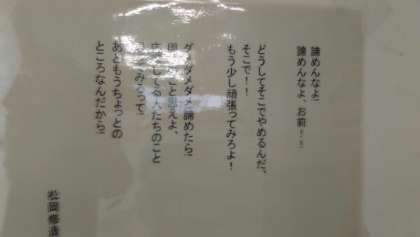 諦めんなよ!
諦めんなよ、お前!!
どうしてそこでやめるんだ、
そこで!!
もう少し頑張ってみろよ!
ダメダメダメ諦めたら!
周りのこと思えよ、
応援してる人たちのこと
思ってみろって!
あともうちょっとの
ところなんだから!
松岡修造